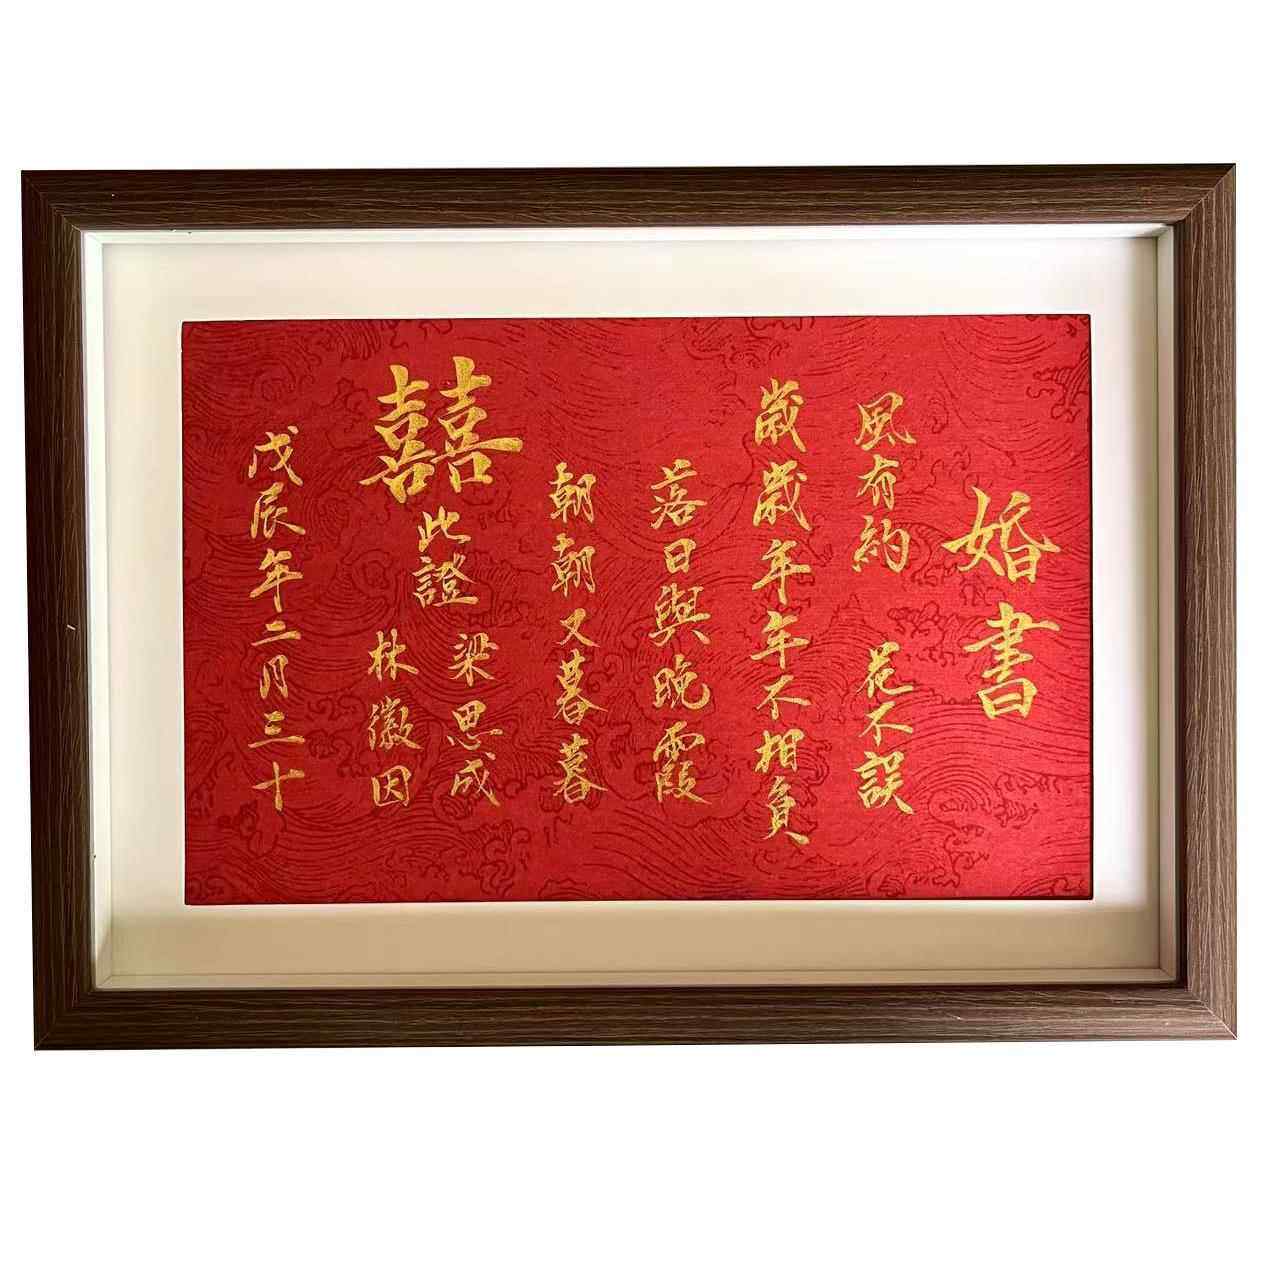 婚書
風有約 花不誤
歲歲年年不相負
落日與晚霞
朝朝又暮暮
囍
此證
梁思成
林徽因
戊辰年二月三十